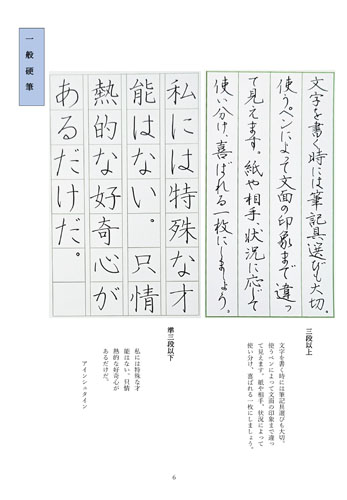 文字を書く時には筆記具選びも大切。
使うペンによって文面の印象まで違っ
て見えます。紙や相手、状況に応じて
使い分け、喜ばれる一枚にしましょう。
私には特殊な才
能はない。只情
熱的な好奇心が
あるだけだ。
一般硬筆
三段以上
文字を書く時には筆記具選びも大切。
使うペンによって文面の印象まで違っ
て見えます。紙や相手、状況によって
使い分け、喜ばれる一枚にしましょう。
準三段以下
私には特殊な才
能はない。只情
熱的な好奇心が
あるだけだ。
アインシュタイン
6